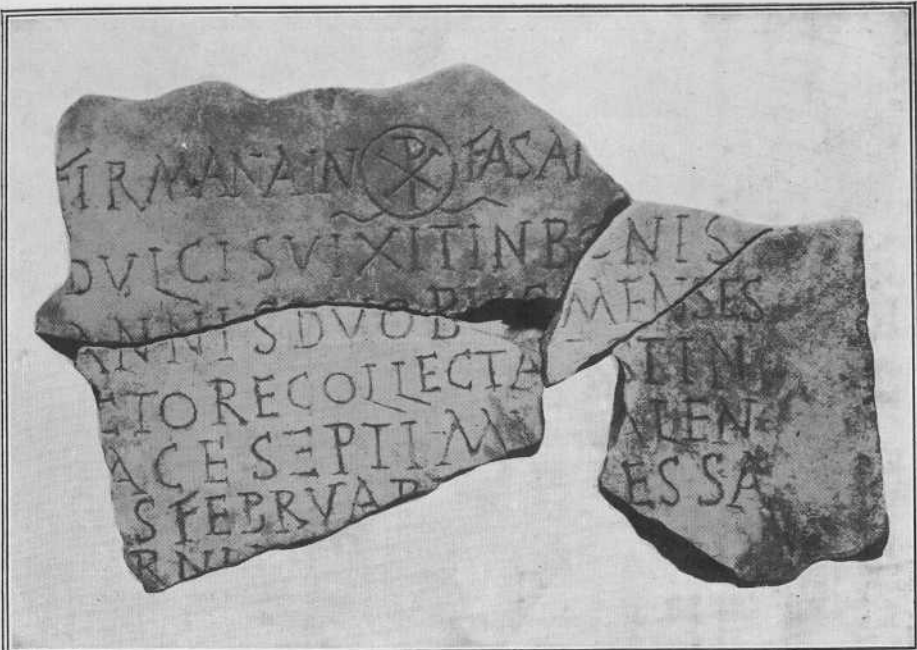 FIRMANA IN ☧ FASAI
DVLCIS VIXIT IN BONIS
ANNIS DVOBVS MENSES
ETO RECOLLECTA EST IN
ACE SEPTIMV ALEN
S FEBRVAR ESSA
RNI